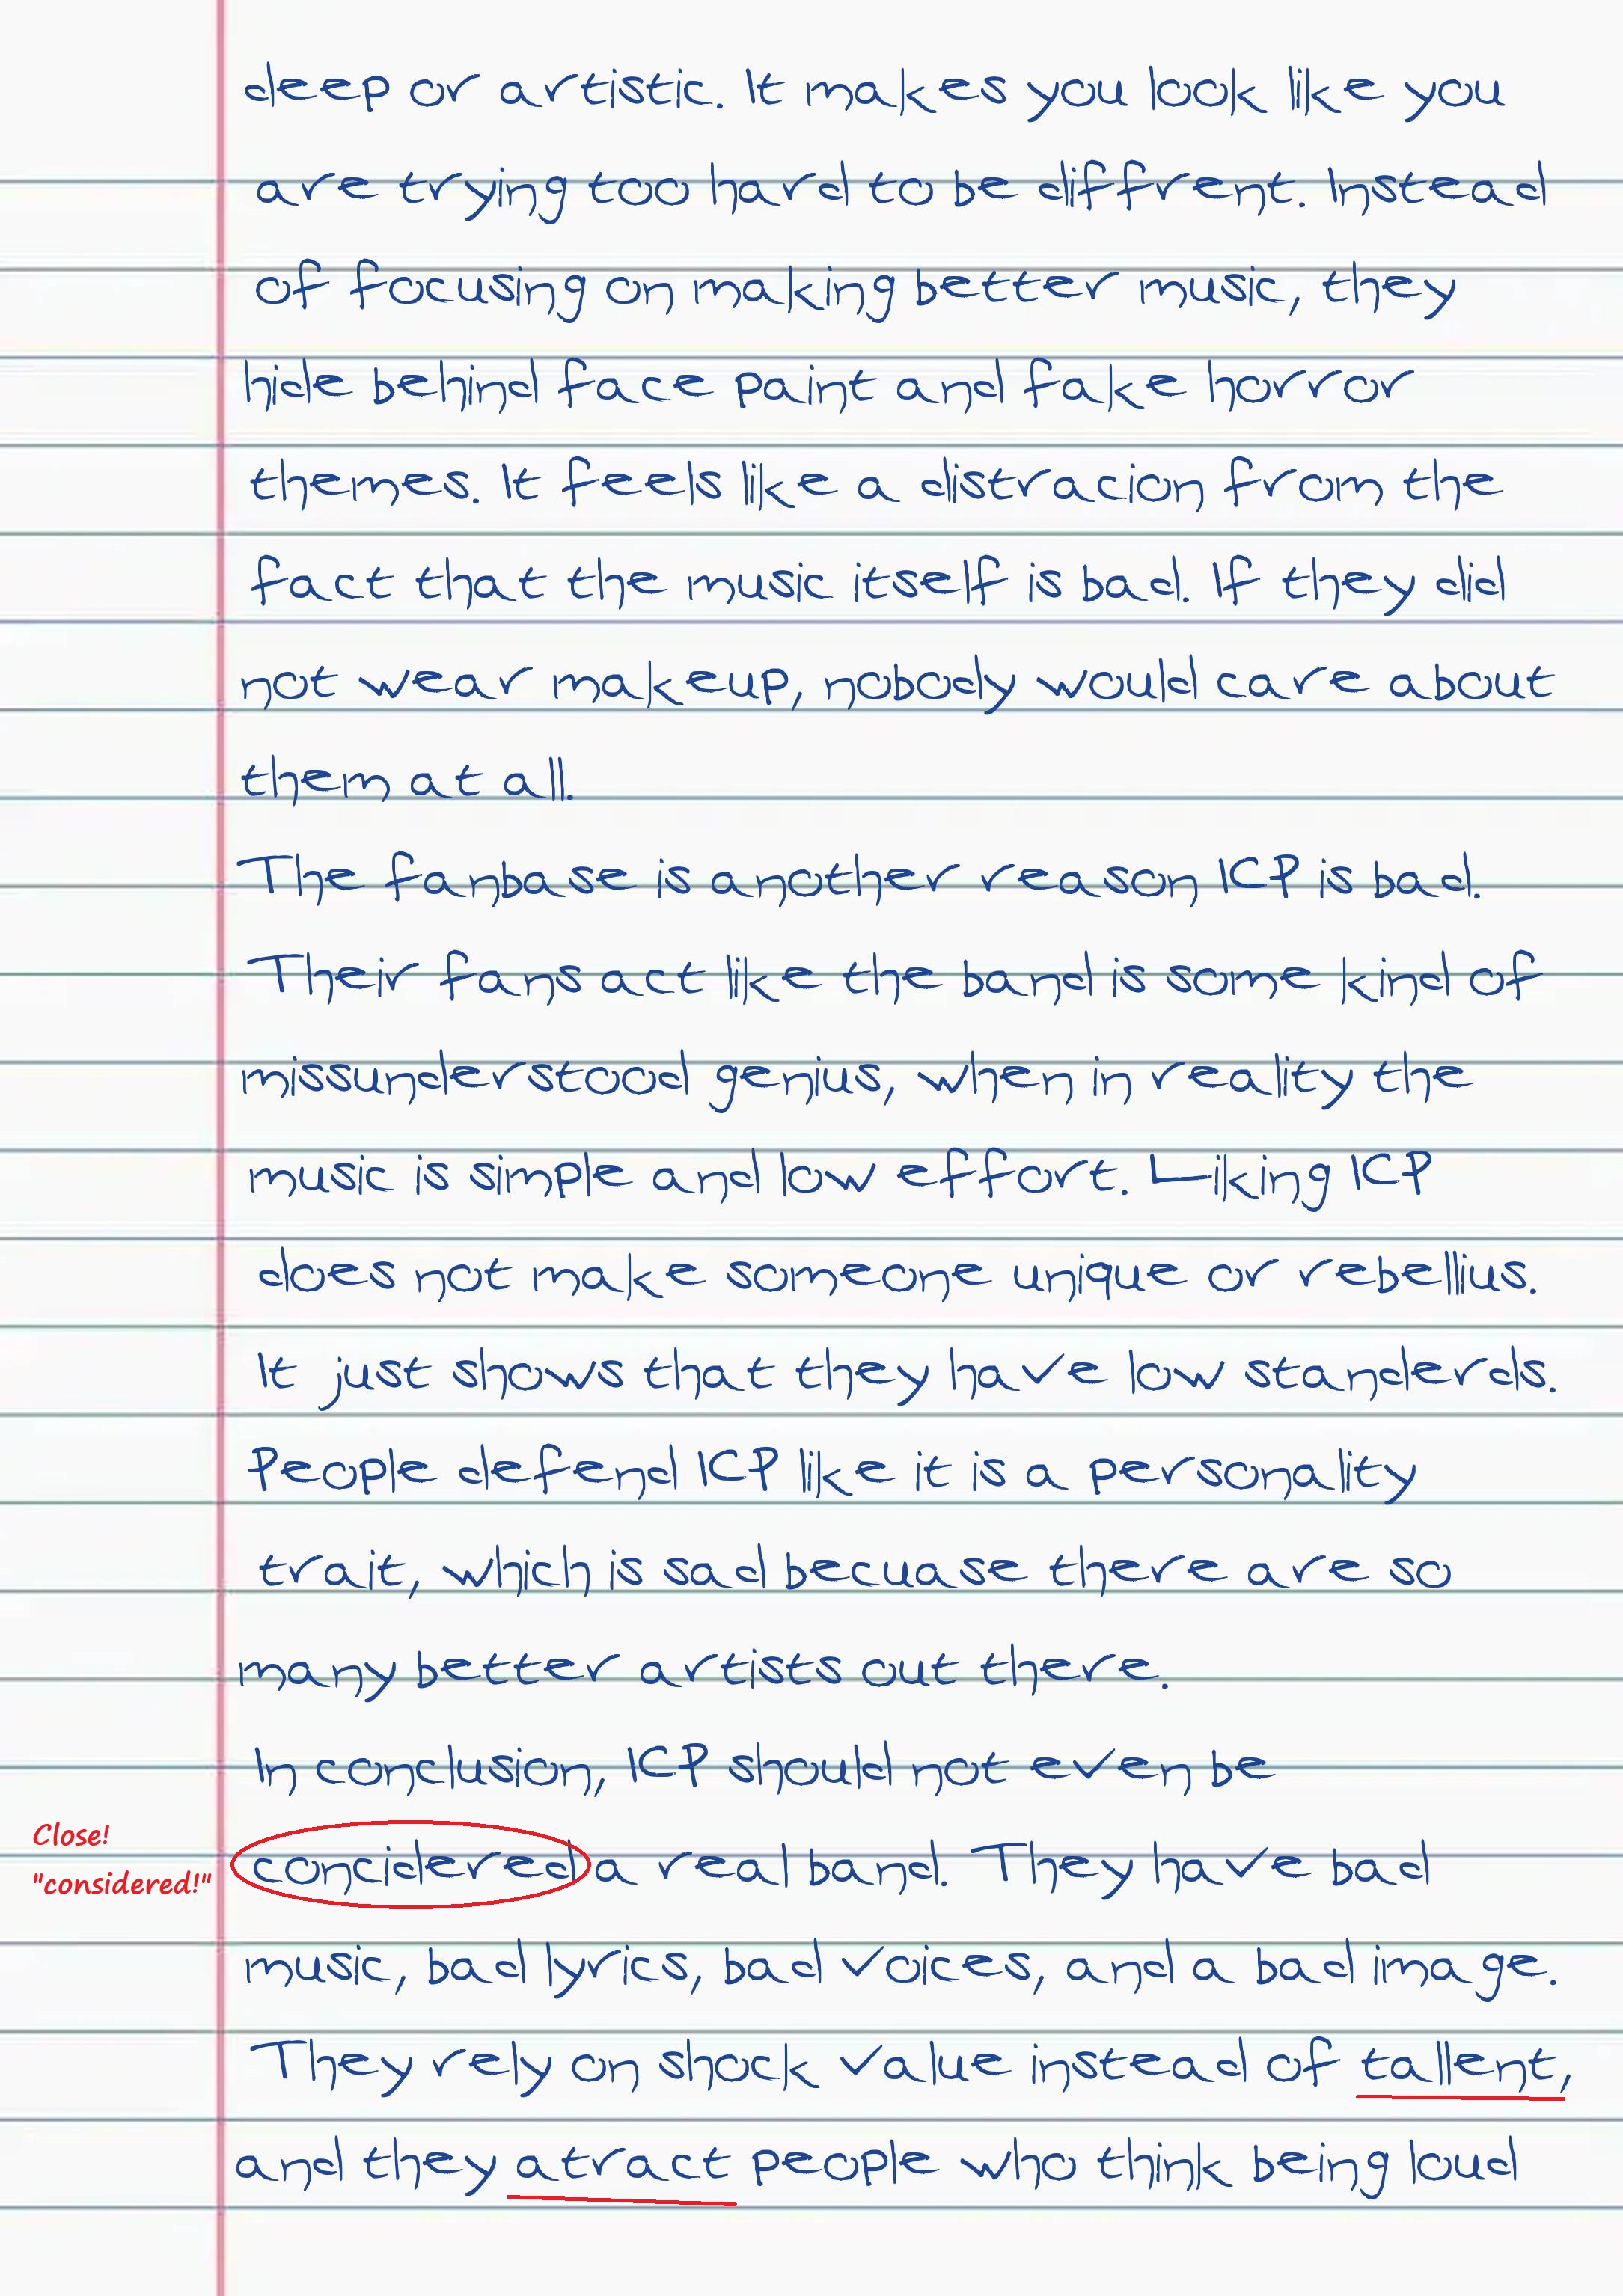 deep or artistic. It makes you look like you
are trying too hard to be diffrent. Instead
of focusing on making better music, they
hide behind face paint and fake horror
themes. It feels like a distracion from the
fact that the music itself is bad. If they did
not wear makeup, nobody would care about
them at all.
The fanbase is another reason ICP is bad.
Their fans act like the band is some kind of
missunderstood genius, when in reality the
music is simple and low effort. Liking ICP
does not make someone unique or rebellius.
It just shows that they have low standerds.
People defend ICP like it is a personality
trait, which is sad becuase there are so
many better artists out there.
In conclusion, ICP should not even be
Close!
"considered!"
concidered a real band. They have bad
music, bad lyrics, bad voices, and a bad image.
They rely on shock value instead of tallent,
and they atract people who think being loud